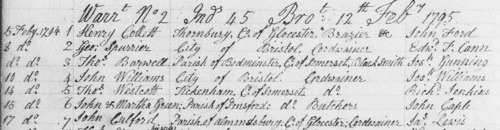 Warrt. No 2 Ind. 45 Brot. 12th Feby 1795
5 Feby. 1794 1 Henry Collett Thornbury, C. of Glocester Brazier &c John Ford
8 do. 2 Geo. Spurrier City of Bristol Cordwainer Edwd. T. Cann
do do. 3 Thos. Barwell Parish of Bedminster, C. of Somerset, Blacksmith Jos. Gunning
10 do. 4 John Williams City of Bristol. Cordwainer Jos. Williams
14 do. 5 Thos. Westcott Tickenham, C. of Somerset do. Richd. Jenkins
15 do. 6 John & Martha Green; Parish of do. Butchers John Cagle
17 do. 7 John Parish of Almondsbury; C. of Glocester; Cordwainer Jas. Lewis